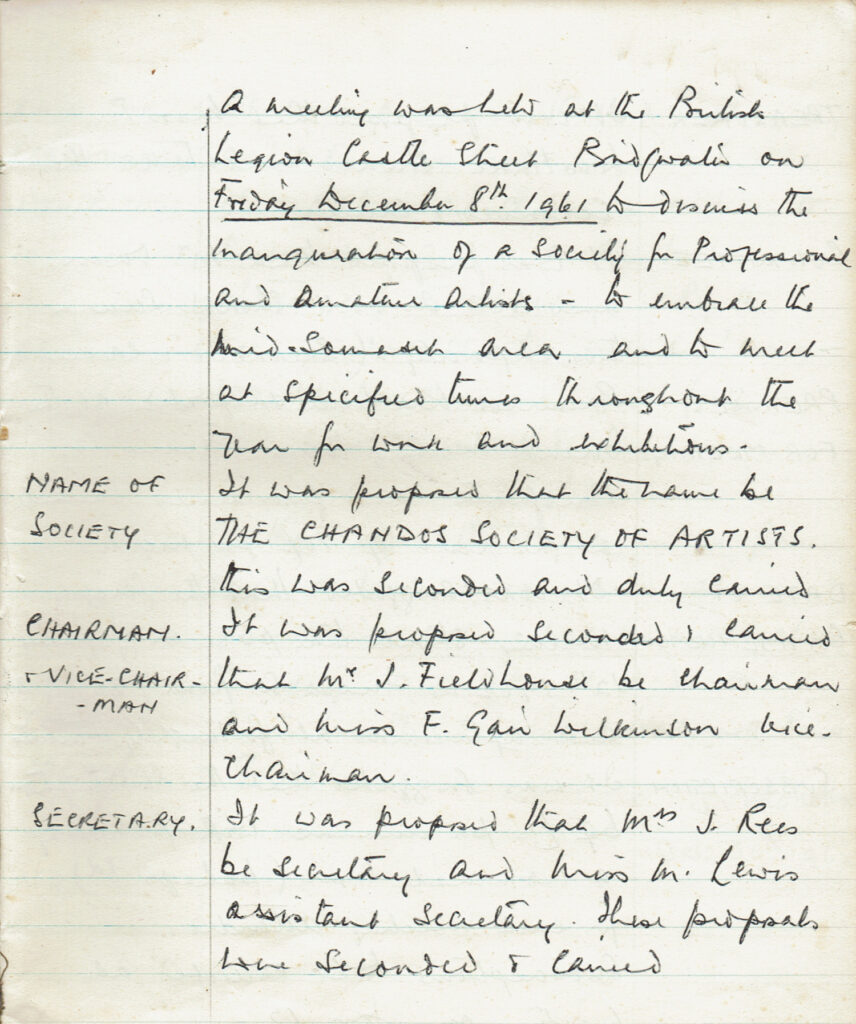 A meeting was held at the British
Legion Castle Street Bridgwater on
Friday December 8th. 1961 to discuss the
inauguration of a Society for Professional
and Amateur Artists - to embrace the
Mid-Somerset area and to meet
at specified times throughout the
year for work and exhibitions.
NAME OF It was proposed that the name be
SOCIETY THE CHANDOS SOCIETY OF ARTISTS.
this was seconded and duly carried
CHAIRMAN. It was proposed seconded & carried
+ VICE-CHAIR- that Mr J. Fieldhouse be chairman
-MAN and Miss F. Gair Wilkinson vice-
chairman.
SECRETARY. It was proposed that Mrs J. Rees
be secretary and Miss M. Lewis
assistant secretary. These proposals
were seconded & carried